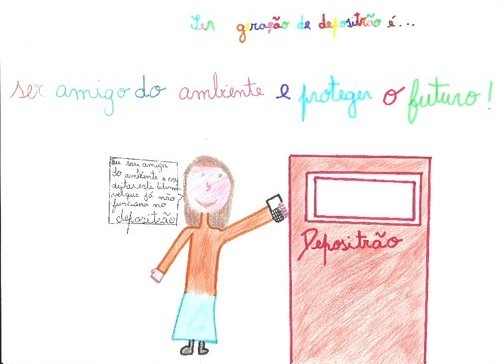 Ser geração de depositrão é...
ser amigo do ambiente e proteger o futuro!
Eu sou amiga
do ambiente e vou
deitar este telemó-
vel que já não
funciona no
depositrão
Depositrão